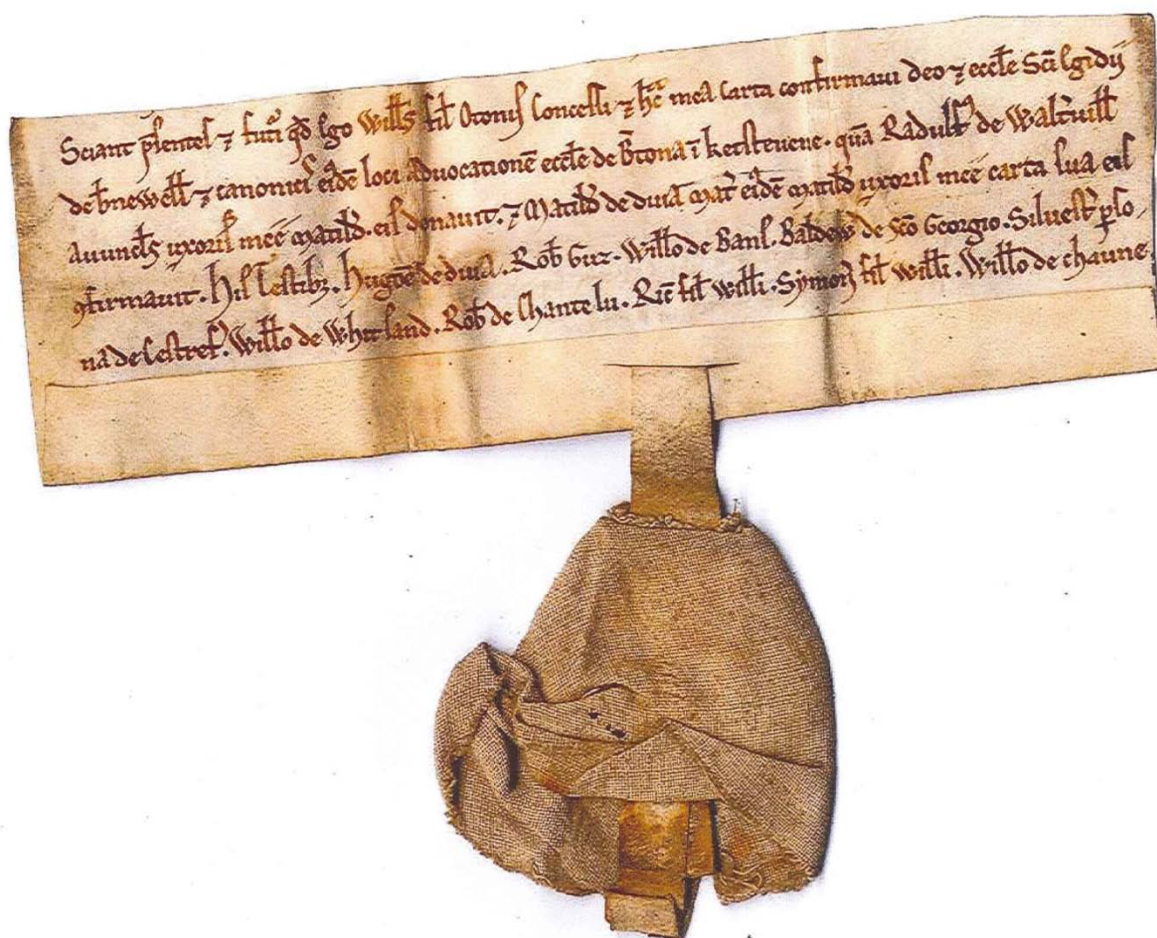 Sciant p̄sentes ⁊ futuꝰ qd̄ Ego Will̄s fil̄ Otonis Concessi ⁊ hac mea Carta confirmaui deo ⁊ eccl̄e Sc̄i Egidii
de b̄newell̄ ⁊ canonicis eiꝰdē loci Aduocationē eccl̄e de b̄tona ī kesteuene. quā Radulf̄ de Walt̄uill̄
auunc̄ls uxoris mee Matild̄. eis donauit. ⁊ Matild̄ de diua mat̄ eiꝰdē Matild̄ uxoris mee carta sua eis
ꝯfirmauit. His testibꝫ. Hugōe de diua. Rob̄ Guz. Will̄o de Bans. Baldew̄ de sc̄o Georgio. Siluest̄ p̱so-
na de Lestref. Will̄o de Whitland. Rob̄ de Chante lu. Ric̄ fil̄ Will̄i. Symon̄ fil̄ Will̄i. Will̄o de chaune